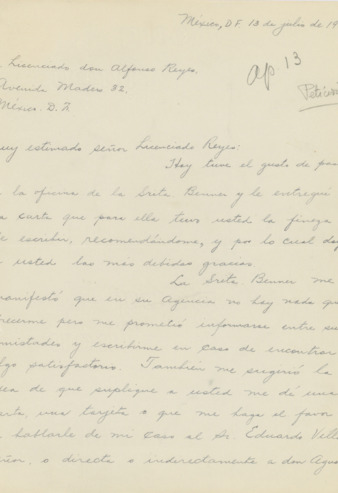 México, D.F. 13 de julio de 19
Licenciado don Alfonso Reyes.
Avenida Madero 32.
México. D. F.
ap 13
Peticion
uy estimado señor Licenciado Reyes:
Hoy tuve el gusto de pas
a la oficina de la Srta. Benner y le entregué
a carta que para ella tuvo usted la fineza
de escribir, recomendándome, y por lo cual doy
a usted las más debidas gracias.
La Srta. Benner me
manifestó que en su Agencia no hay nada que
frecerme pero me prometió informarse entre su
amistades y escribirme en caso de encontrar
lgo satisfactorio. También me sugirió la
dea de que suplique a usted me dé una
carta, una tarjeta o que me haga el favor
e hablarle de mi caso al Sr. Eduardo Villa
eñor, o directa o indirectamente a don Agus